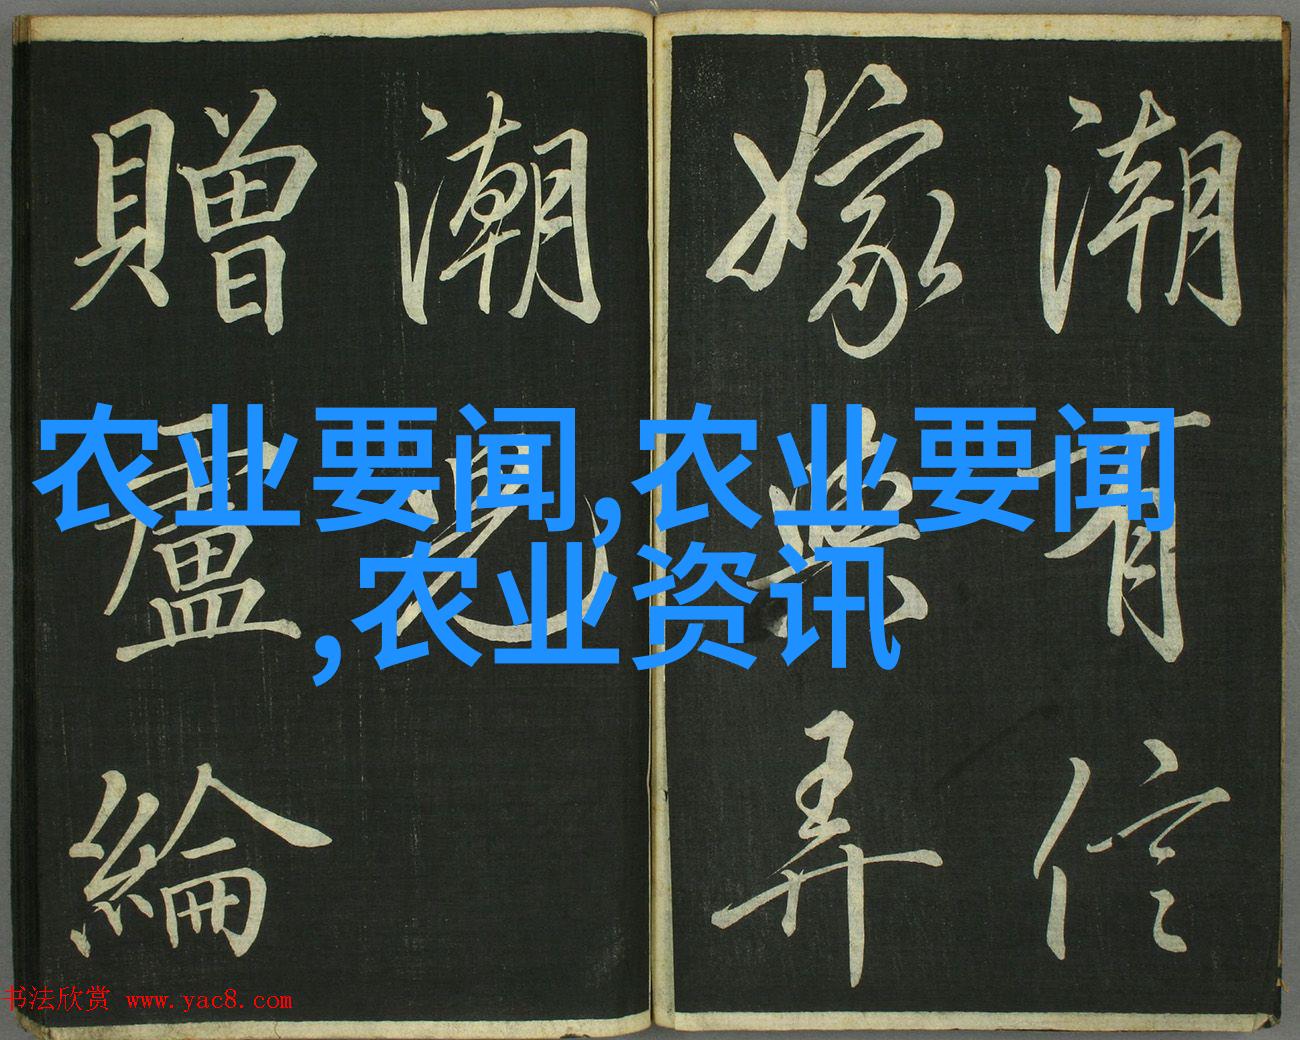 潮有信
嫁與弄
潮兒
贈盧綸
农业要闻,农业要闻
,农业资讯
书法欣赏 www.yac8.com